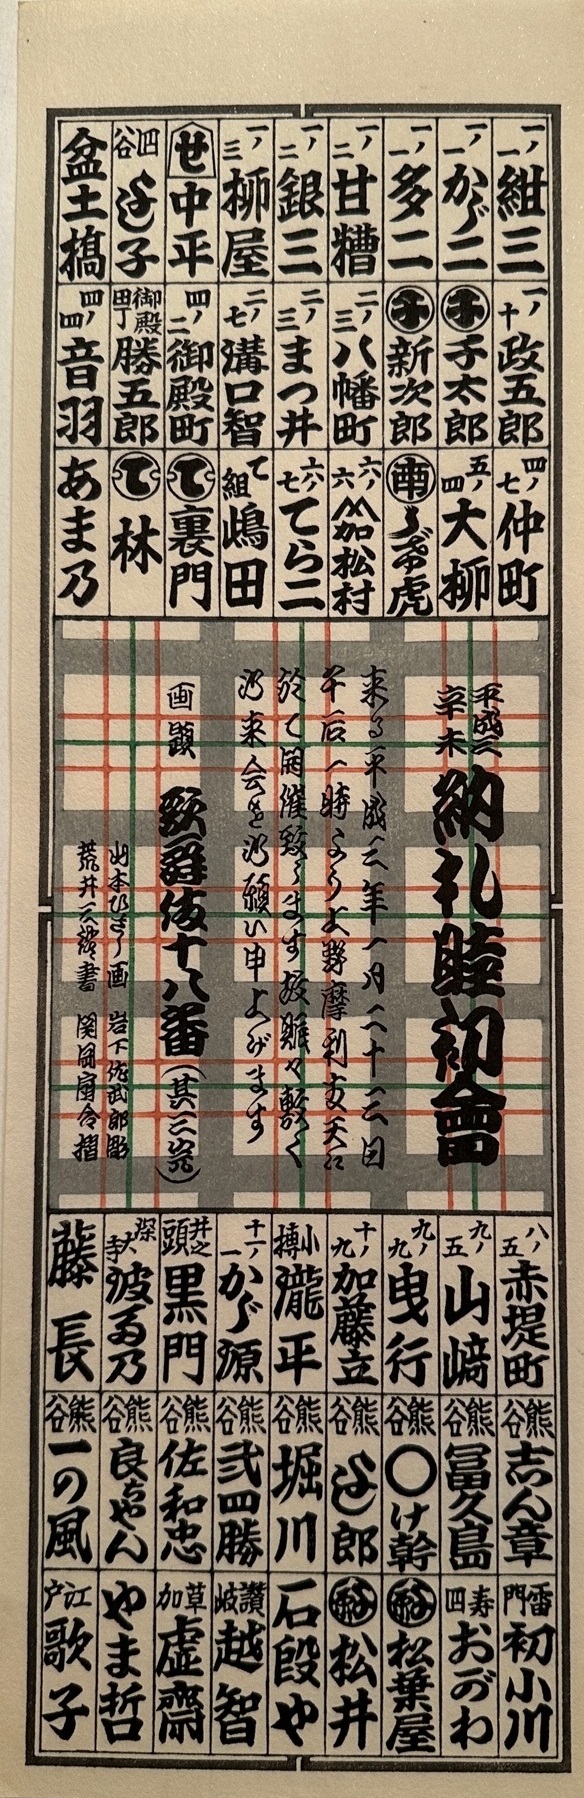 一ノ一 紺三
一ノ一 かゞ二
一ノ一 多二
一ノ二 甘糟
一ノ二 銀三
一ノ三 柳屋
せ 中平
四谷 よし子
盆土橋
一ノ十 政五郎
子 子太郎
子 新次郎
二ノ三 八幡町
二ノ三 まつ井
二ノ七 溝口智
四ノ二 御殿町
御殿町 勝五郎
四ノ四 音羽
四ノ七 仲町
五ノ四 大柳
六ノ六 加松村
六ノ七 てら二
て組 嶋田
て 裏門
て 林
あま乃
平成三
辛未
納札睦初會
来る平成三年一月二十三日
午后一時より上野摩利支天に
於て開催致します故賑々敷く
御来会を御願い申上げます
画題 歌舞伎十八番(其三完)
山本ひさし画 岩下佐武郎彫
荒井三禮書 関岡扇令摺
八ノ五 赤堤町
九ノ五 山﨑
九ノ九 曳行
十ノ九 加藤立
小摶 瀧平
十一ノ一 かゞ源
井之頭 黒門
深大寺 波多乃
藤長
熊谷 志ん章
熊谷 冨久島
熊谷 〇け幹
熊谷 よし郎
熊谷 堀川
熊谷 弐四勝
熊谷 佐和忠
熊谷 良ちやん
熊谷 一の風
雷門 初小川
寿四 おがわ
松葉屋
松井
石段や
讃岐 越智
草加 虚齋
やま哲
江戸 歌子